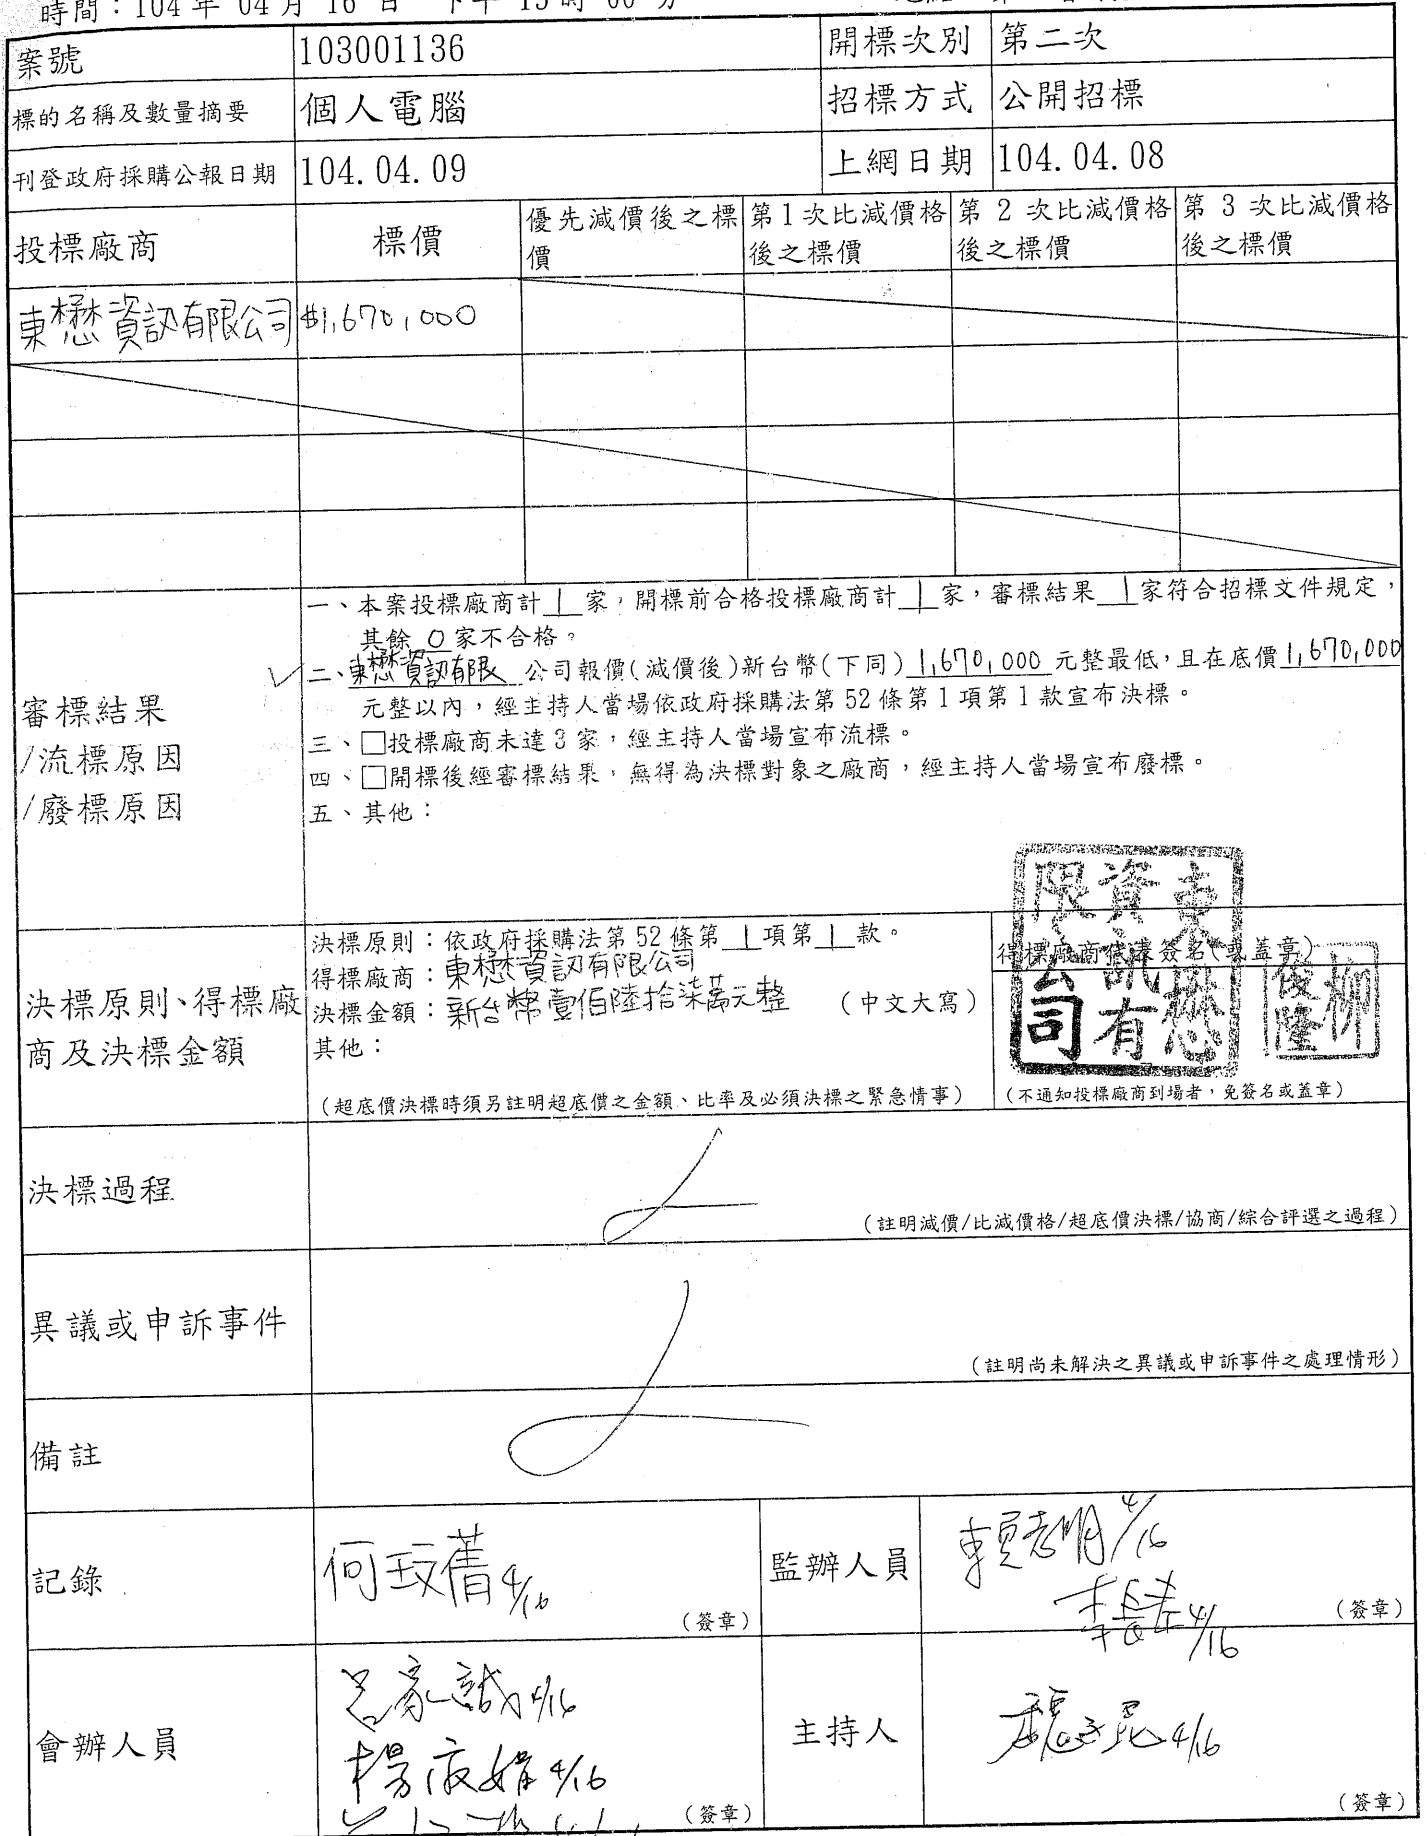 時間：104 年 04 月 16 日 下午 15 時 00 分
案號 103001136 開標次別 第二次
標的名稱及數量摘要 個人電腦 招標方式 公開招標
刊登政府採購公報日期 104.04.09 上網日期 104.04.08
投標廠商 標價 優先減價後之標價 第1次比減價格後之標價 第 2 次比減價格後之標價 第 3 次比減價格後之標價
東懋資訊有限公司 $1,670,000
審標結果
/流標原因
/廢標原因
一、本案投標廠商計 1 家，開標前合格投標廠商計 1 家，審標結果 1 家符合招標文件規定，
其餘 0 家不合格。
二、東懋資訊有限 公司報價(減價後)新台幣(下同) 1,670,000 元整最低，且在底價 1,670,000
元整以內，經主持人當場依政府採購法第 52 條第 1 項第 1 款宣布決標。
三、□投標廠商未達 3 家，經主持人當場宣布流標。
四、□開標後經審標結果，無得為決標對象之廠商，經主持人當場宣布廢標。
五、其他：
決標原則、得標廠
商及決標金額
決標原則：依政府採購法第 52 條第 1 項第 1 款。
得標廠商：東懋資訊有限公司
決標金額：新台幣壹佰陸拾柒萬元整 (中文大寫)
其他：
(超底價決標時須另註明超底價之金額、比率及必須決標之緊急情事)
得標廠商代表簽名(或蓋章)
東懋資訊有限公司
柳俊隆
(不通知投標廠商到場者，免簽名或蓋章)
決標過程
(註明減價/比減價格/超底價決標/協商/綜合評選之過程)
異議或申訴事件
(註明尚未解決之異議或申訴事件之處理情形)
備註
記錄 何玟菁 4/16 (簽章)
監辦人員 賴志明 4/16
4/16 (簽章)
會辦人員 呂家誠 4/16
楊淑娟 4/16
(簽章)
主持人 4/16
(簽章)